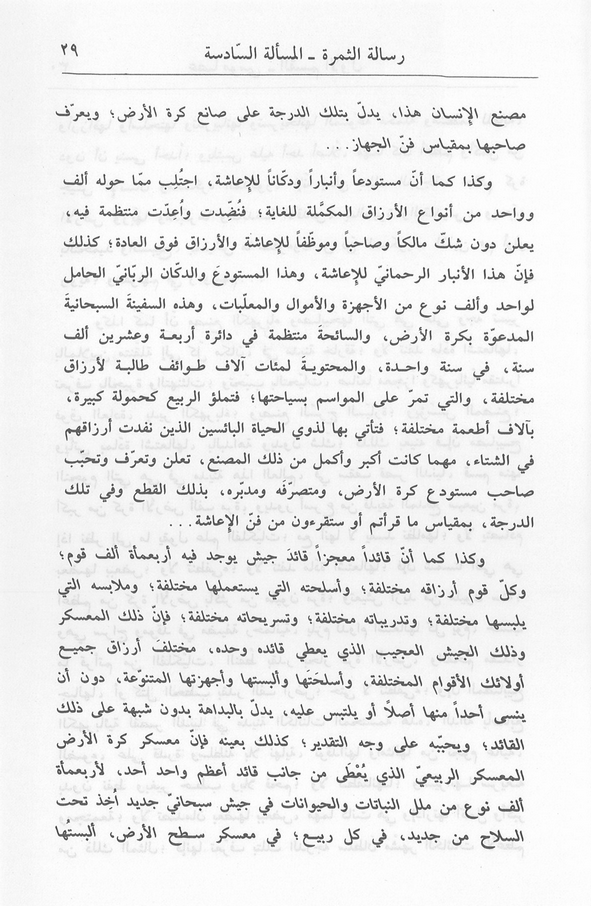 رسالة الثمرة ـ المسألة السّادسة ٢٩
مصنع الإنسان هذا، يدلّ بتلك الدرجة على صانع كرة الأرض؛ ويعرّف
صاحبها بمقياس فنّ الجهاز...
وكذا كما أنّ مستودعاً وأنباراً ودكّاناً للإعاشة، اجتُلِب ممّا حوله ألف
وواحد من أنواع الأرزاق المكمَّلة للغاية؛ فنُضِّدت واُعِدّت منتظمة فيه،
يعلن دون شكّ مالكاً وصاحباً وموظّفاً للإعاشة والأرزاق فوق العادة؛ كذلك
فإنّ هذا الأنبار الرحمانيّ للإعاشة، وهذا المستودعَ والدكّان الربّانيّ الحامل
لواحد وألف نوع من الأجهزة والأموال والمعلّبات، وهذه السفينةَ السبحانيةَ
المدعوّة بكرة الأرض، والسائحةَ منتظمة في دائرة أربعة وعشرين ألف
سنة، في سنة واحدة، والمحتويةَ لمئات آلاف طوائف طالبة لأرزاق
مختلفة، والتي تمرّ على المواسم بسياحتها؛ فتملؤ الربيع كحمولة كبيرة،
بآلاف أطعمة مختلفة؛ فتأتي بها لذوي الحياة البائسين الذين نفدت أرزاقهم
في الشتاء، مهما كانت أكبر وأكمل من ذلك المصنع، تعلن وتعرّف وتحبّب
صاحب مستودع كرة الأرض، ومتصرّفَه ومدبّره، بذلك القطع وفي تلك
الدرجة، بمقياس ما قرأتم أو ستقرءون من فنّ الإعاشة...
وكذا كما أنّ قائداً معجزاً قائدَ جيش يوجد فيه أربعمأة ألف قوم؛
وكلّ قوم أرزاقه مختلفة؛ وأسلحته التي يستعملها مختلفة؛ وملابسه التي
يلبسها مختلفة؛ وتدريباته مختلفة؛ وتسريحاته مختلفة؛ فإنّ ذلك المعسكر
وذلك الجيش العجيب الذي يعطي قائده وحده، مختلفَ أرزاق جميع
أولائك الأقوام المختلفة، وأسلحَتها وألبستها وأجهزتها المتنوّعة، دون أن
ينسى أحداً منها أصلاً أو يلتبس عليه، يدلّ بالبداهة بدون شبهة على ذلك
القائد؛ ويحبّبه على وجه التقدير؛ كذلك بعينه فإنّ معسكر كرة الأرض
المعسكر الربيعيّ الذي يُعْطَى من جانب قائد أعظم واحد أحد، لأربعمأة
ألف نوع من ملل النباتات والحيوانات في جيش سبحانيّ جديد اُخِذ تحت
السلاح من جديد، في كل ربيع؛ في معسكر سطح الأرض، ألبستُها